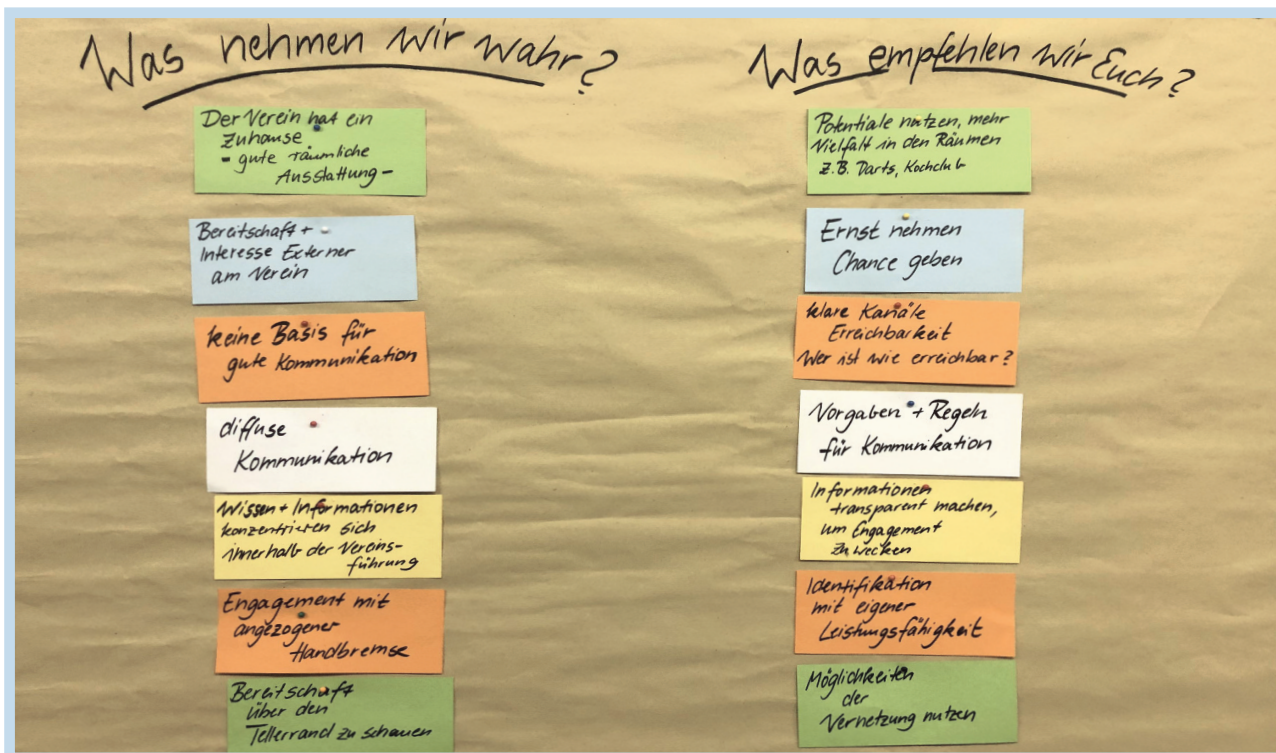 Was nehmen wir wahr?
Der Verein hat ein
Zuhause
- gute räumliche
Ausstattung -
Bereitschaft +
Interesse Externer
am Verein
keine Basis für
gute Kommunikation
diffuse
Kommunikation
Wissen + Informationen
konzentrieren sich
innerhalb der Vereins-
führung
Engagement mit
angezogener
Handbremse
Bereitschaft
über den
Tellerrand zu schauen
Was empfehlen wir Euch?
Potentiale nutzen, mehr
Vielfalt in den Räumen
z.B. Darts, Kochclub
Ernst nehmen
Chance geben
klare Kanäle
Erreichbarkeit
Wer ist wie erreichbar?
Vorgaben + Regeln
für Kommunikation
Informationen
transparent machen,
um Engagement
zu wecken
Identifikation
mit eigener
Leistungsfähigkeit
Möglichkeiten
der
Vernetzung nutzen